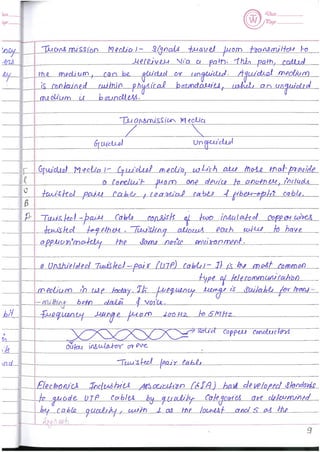 Transmission Media :- Signals travel from transmitter to
receivers via a path. This path, called
the medium, can be guided or unguided. A guided medium
is contained within physical boundaries, while an unguided
medium is boundless.
Transmission Media
Guided
Unguided
Guided Media :- Guided media, which are those that provide
a conduit from one device to another, include
twisted pair cable, coaxial cable & fiber-optic cable.
Twisted-pair Cable consists of two insulated copper wires
twisted together. Twisting allows each wire to have
approximately the same noise environment.
Unshielded Twisted-pair (UTP) Cable:- It is the most common
type of telecommunication
medium in use today. Its frequency range is suitable for trans-
-mitting both data & voice.
Frequency range from 100 Hz to 5MHz.
solid Copper conductors
Outer insulator or PVC
Twisted pair cable
Electronics Industries Association (EIA) has developed standards
to grade UTP Cables by quality. Categories are determined
by cable quality, with 1 as the lowest and 5 as the
9